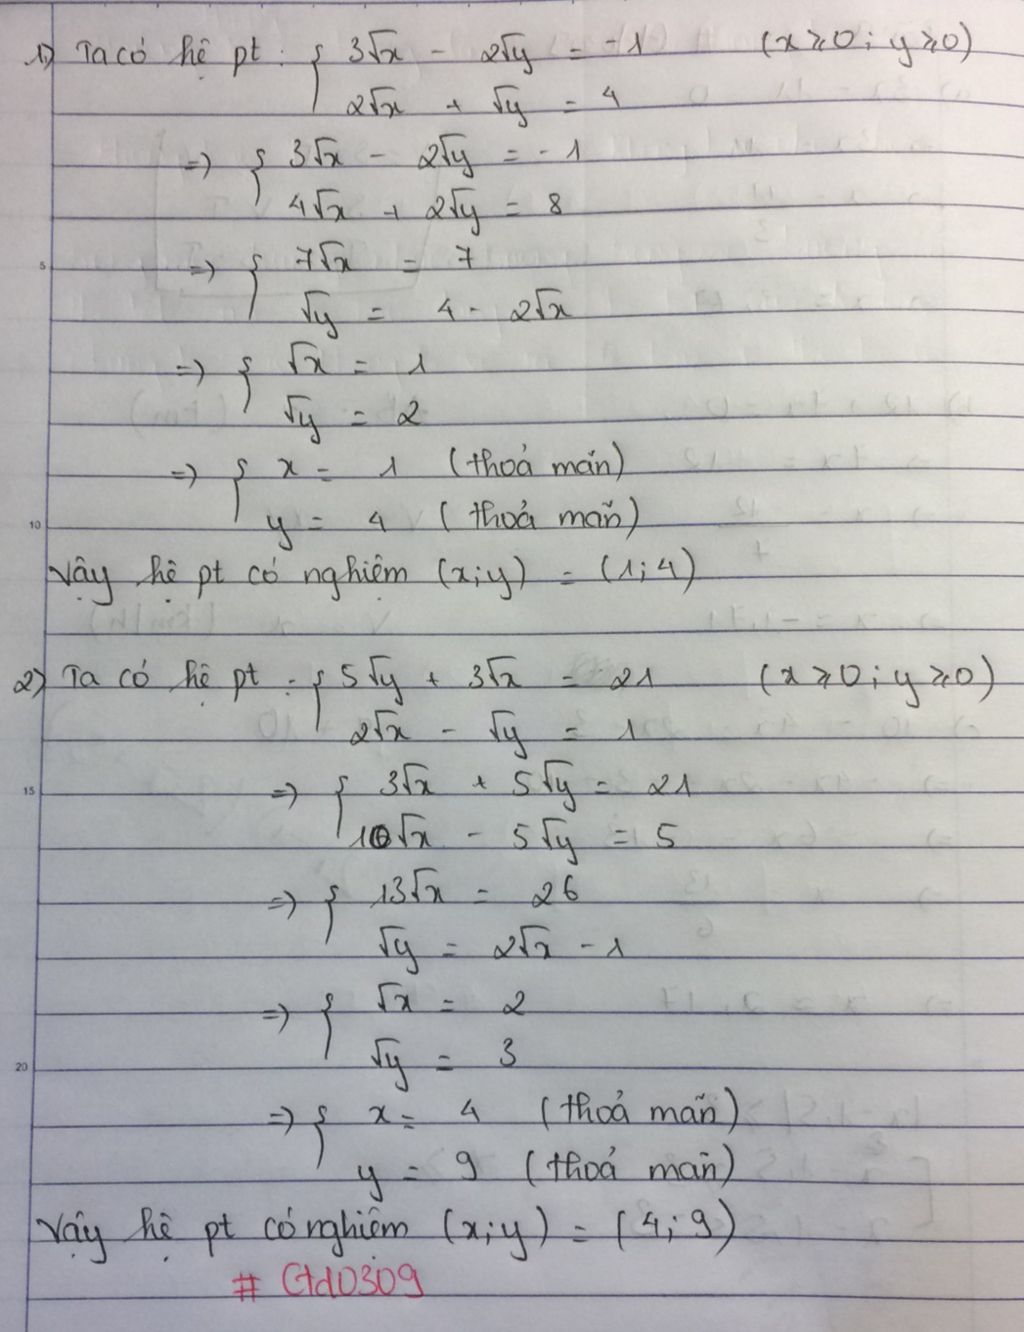 1) Ta có hệ pt : { 3√x - 2√y = -1 (x ⩾ 0 ; y ⩾ 0)
2√x + √y = 4
=> { 3√x - 2√y = -1
4√x + 2√y = 8
5
=> { 7√x = 7
√y = 4 - 2√x
=> { √x = 1
√y = 2
=> { x = 1 (thoả mãn)
10
y = 4 (thoả mãn)
Vậy hệ pt có nghiệm (x;y) = (1;4)
2) Ta có hệ pt : { 5√y + 3√x = 21 (x ⩾ 0 ; y ⩾ 0)
2√x - √y = 1
15
=> { 3√x + 5√y = 21
10√x - 5√y = 5
=> { 13√x = 26
√y = 2√x - 1
=> { √x = 2
√y = 3
20
=> { x = 4 (thoả mãn)
y = 9 (thoả mãn)
Vậy hệ pt có nghiệm (x;y) = (4;9)
# Gtd0309